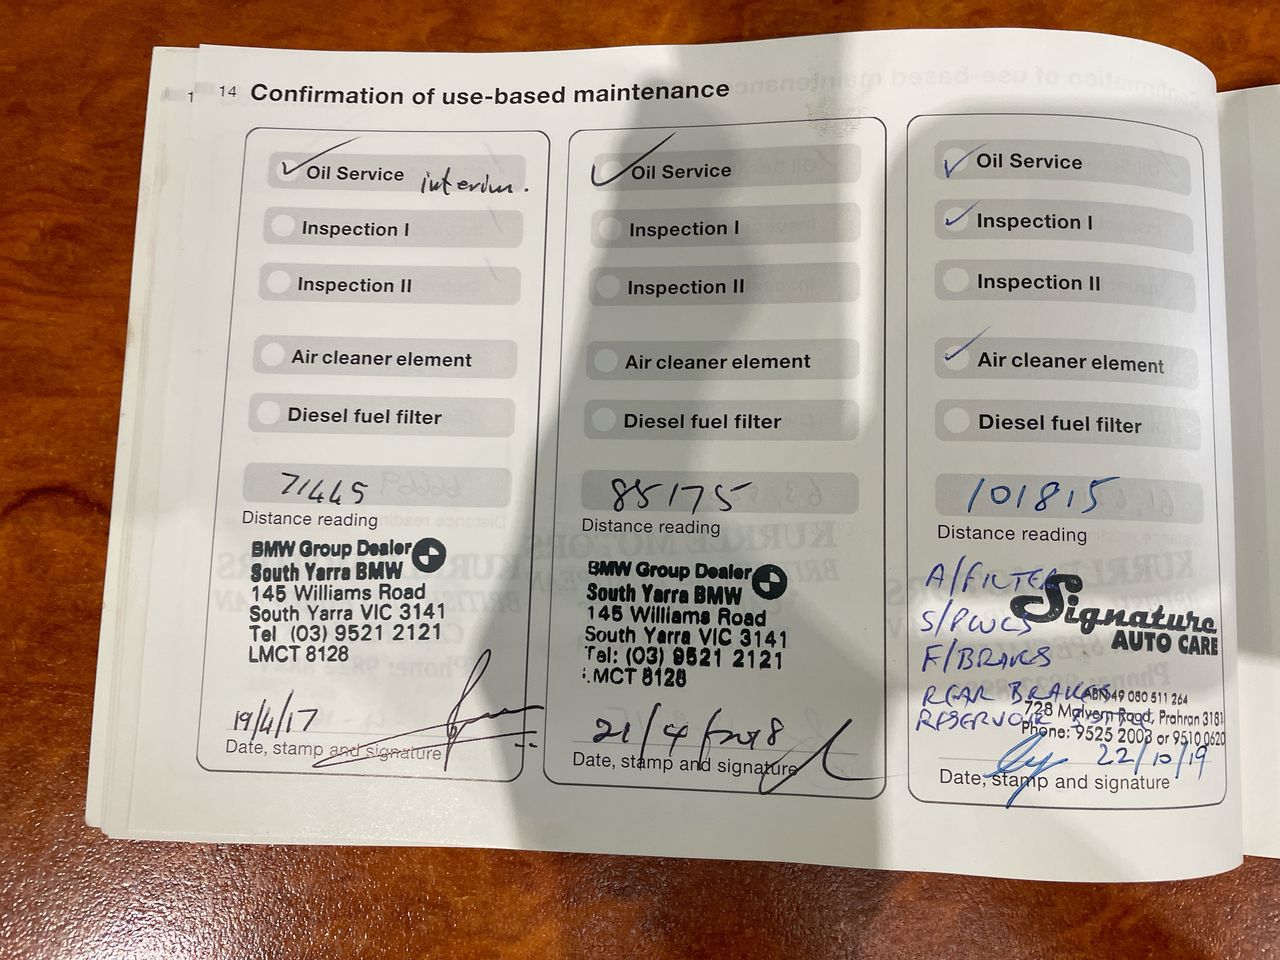 14 Confirmation of use-based maintenance
Oil Service interim.
Inspection I
Inspection II
Air cleaner element
Diesel fuel filter
71445
Distance reading
BMW Group Dealer
South Yarra BMW
145 Williams Road
South Yarra VIC 3141
Tel (03) 9521 2121
LMCT 8128
19/4/17
Date, stamp and signature
Oil Service
Inspection I
Inspection II
Air cleaner element
Diesel fuel filter
85175
Distance reading
BMW Group Dealer
South Yarra BMW
145 Williams Road
South Yarra VIC 3141
Tel: (03) 9521 2121
LMCT 8128
21/4/2018
Date, stamp and signature
Oil Service
Inspection I
Inspection II
Air cleaner element
Diesel fuel filter
101815
Distance reading
A/FILTER
S/PLUGS
F/BRAKS
REAR BRAKES
RESERVOIR
Signature
AUTO CARE
ABN 49 080 511 264
728 Malvern Road, Prahran 3181
Phone: 9525 2003 or 9510 0620
22/10/19
Date, stamp and signature